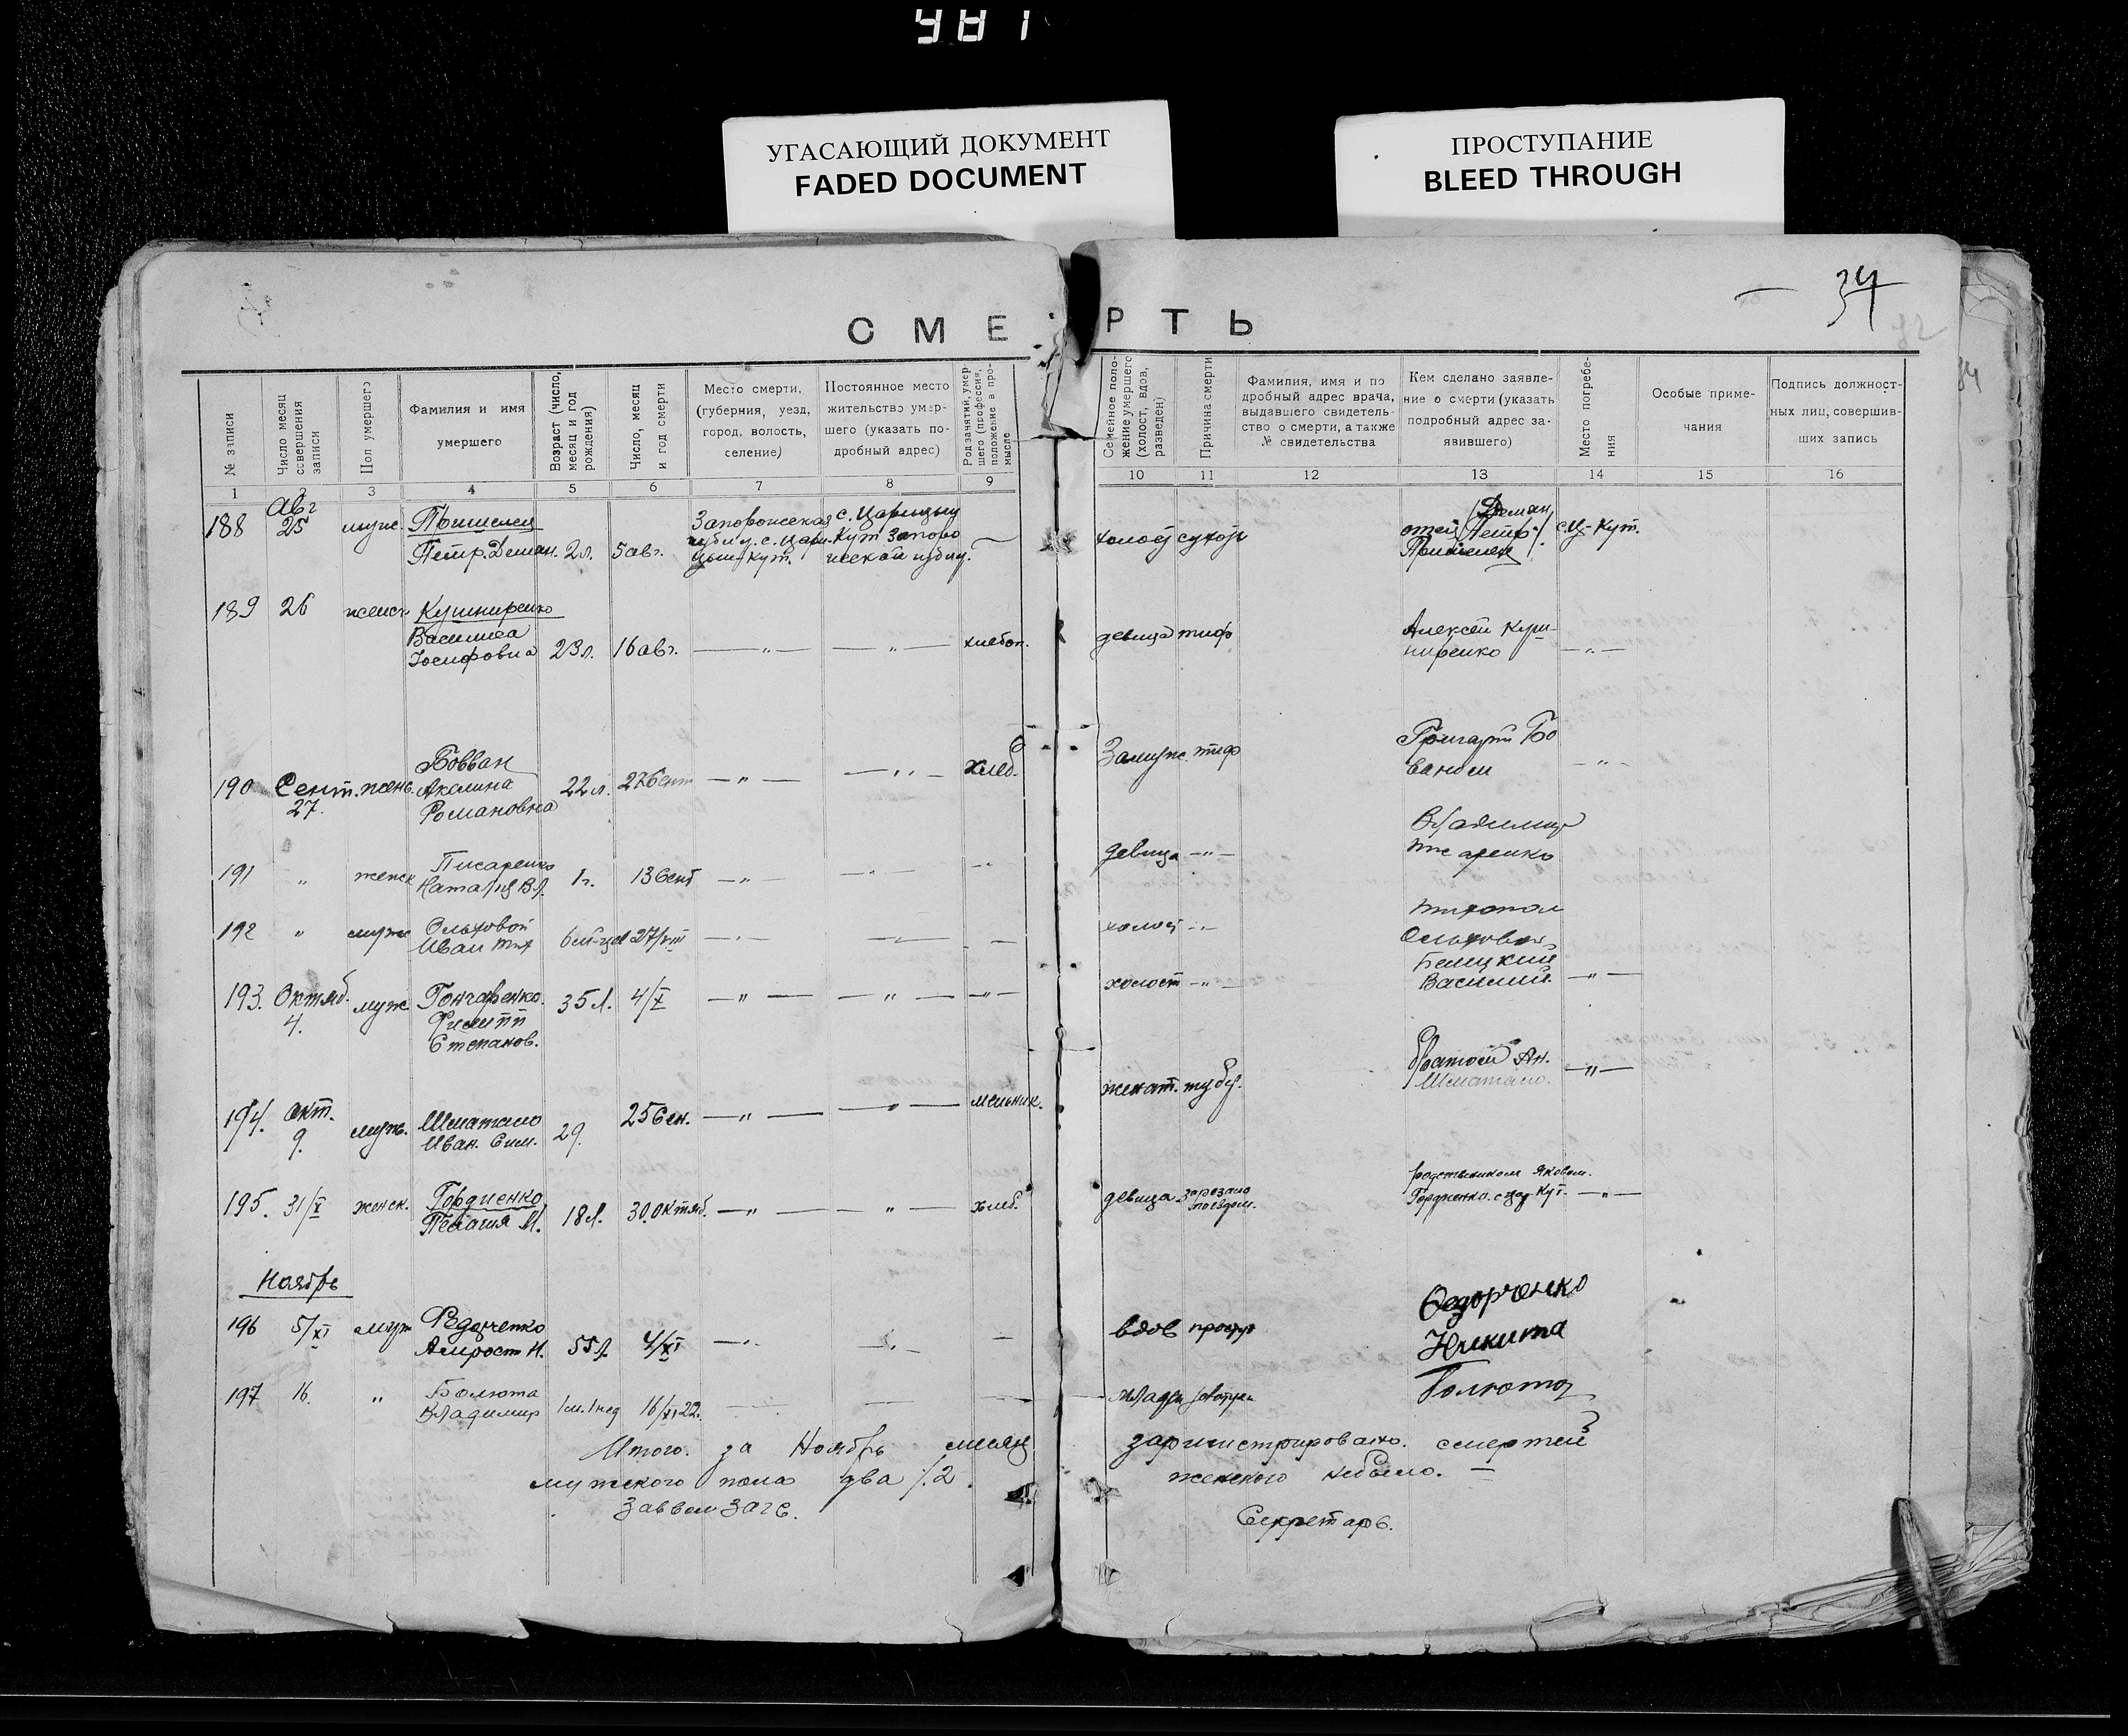 УГАСАЮЩИЙ ДОКУМЕНТ
FADED DOCUMENT
ПРОСТУПАНИЕ
BLEED THROUGH
34
СМЕРТЬ
№ записи
Число месяц совершения записи
Пол умершего
Фамилия и имя умершего
Возраст (число, месяц и год рождения)
Число, месяц и год смерти
Место смерти, (губерния, уезд, город, волость, селение)
Постоянное место жительство умершего (указать подробный адрес)
Род занятий, умершего (профессия, положение в промысле
Семейное положение умершего (холост, вдов, разведен)
Причина смерти
Фамилия, имя и по дробный адрес врача, выдавшего свидетельство о смерти, а также № свидетельства
Кем сделано заявление о смерти (указать подробный адрес заявившего)
Место погребения
Особые примечания
Подпись должностных лиц, совершивших запись
1 2 3 4 5 6 7 8 9 10 11 12 13 14 15 16
Авг
188 25 муж.
Петр. Демян. 2 л. 5 авг.
Запорожская с. Царицын
Кут Запоро
цын-Кут.
холост
отец
с. Ц-Кут.
189 26 женск Кушниренко
Василиса
Иосифовна 23 л. 16 авг. — „ — — „ — хлебоп.
девица тиф Алексей Куш-
ниренко — „ —
190 Сент. 27. женс. Бовван
Акелина
Романовна 22 л. 27 Сент — „ — — „ — хлеб.
Замуж. тиф Григорий Бо
ваном — „ —
191 „ женск Писаренко
Наталия Вл. 1 г. 13 Сент — „ — — „ —
девица — „ — Владимир
Писаренко
192 „ муж Ольховой
Иван Тих 6 м-цев 27/VIII — „ — — „ — —
холост — „ —
Ольховой
193. Октяб. 4. муж Гончаренко
Филипп
Степанов. 35 л. 4/X — „ — — „ — — „ —
холост — „ — Белецкий
Василий. — „ —
194. Окт. 9. муж. Шматало
Иван. Сим. 29. 25 Сен. — „ — — „ — мельник.
женат. туб. братом Ан.
Шматало. — „ —
195. 31/X женск. Гордиенко
Пелагия И. 18 л. 30. Октяб. — „ — — „ — хлеб.
девица зарезано
поездом. родственником Яковом.
Гордиенко. с. Цар-Кут. — „ —
Ноябрь
196 5/XI муж Федорченко
Амрост Н. 55 л. 4/XI — „ — „ — —
вдов Федорченко
Никита
197 16. „ Болюта
Владимир 1 м. 1 нед 16/XI 22.
Болюта
Итого. за Ноябрь месяц зарегистрировано. смертей
мужского пола два /2. женского небыло. —
Заввол ЗАГС. Секретарь.